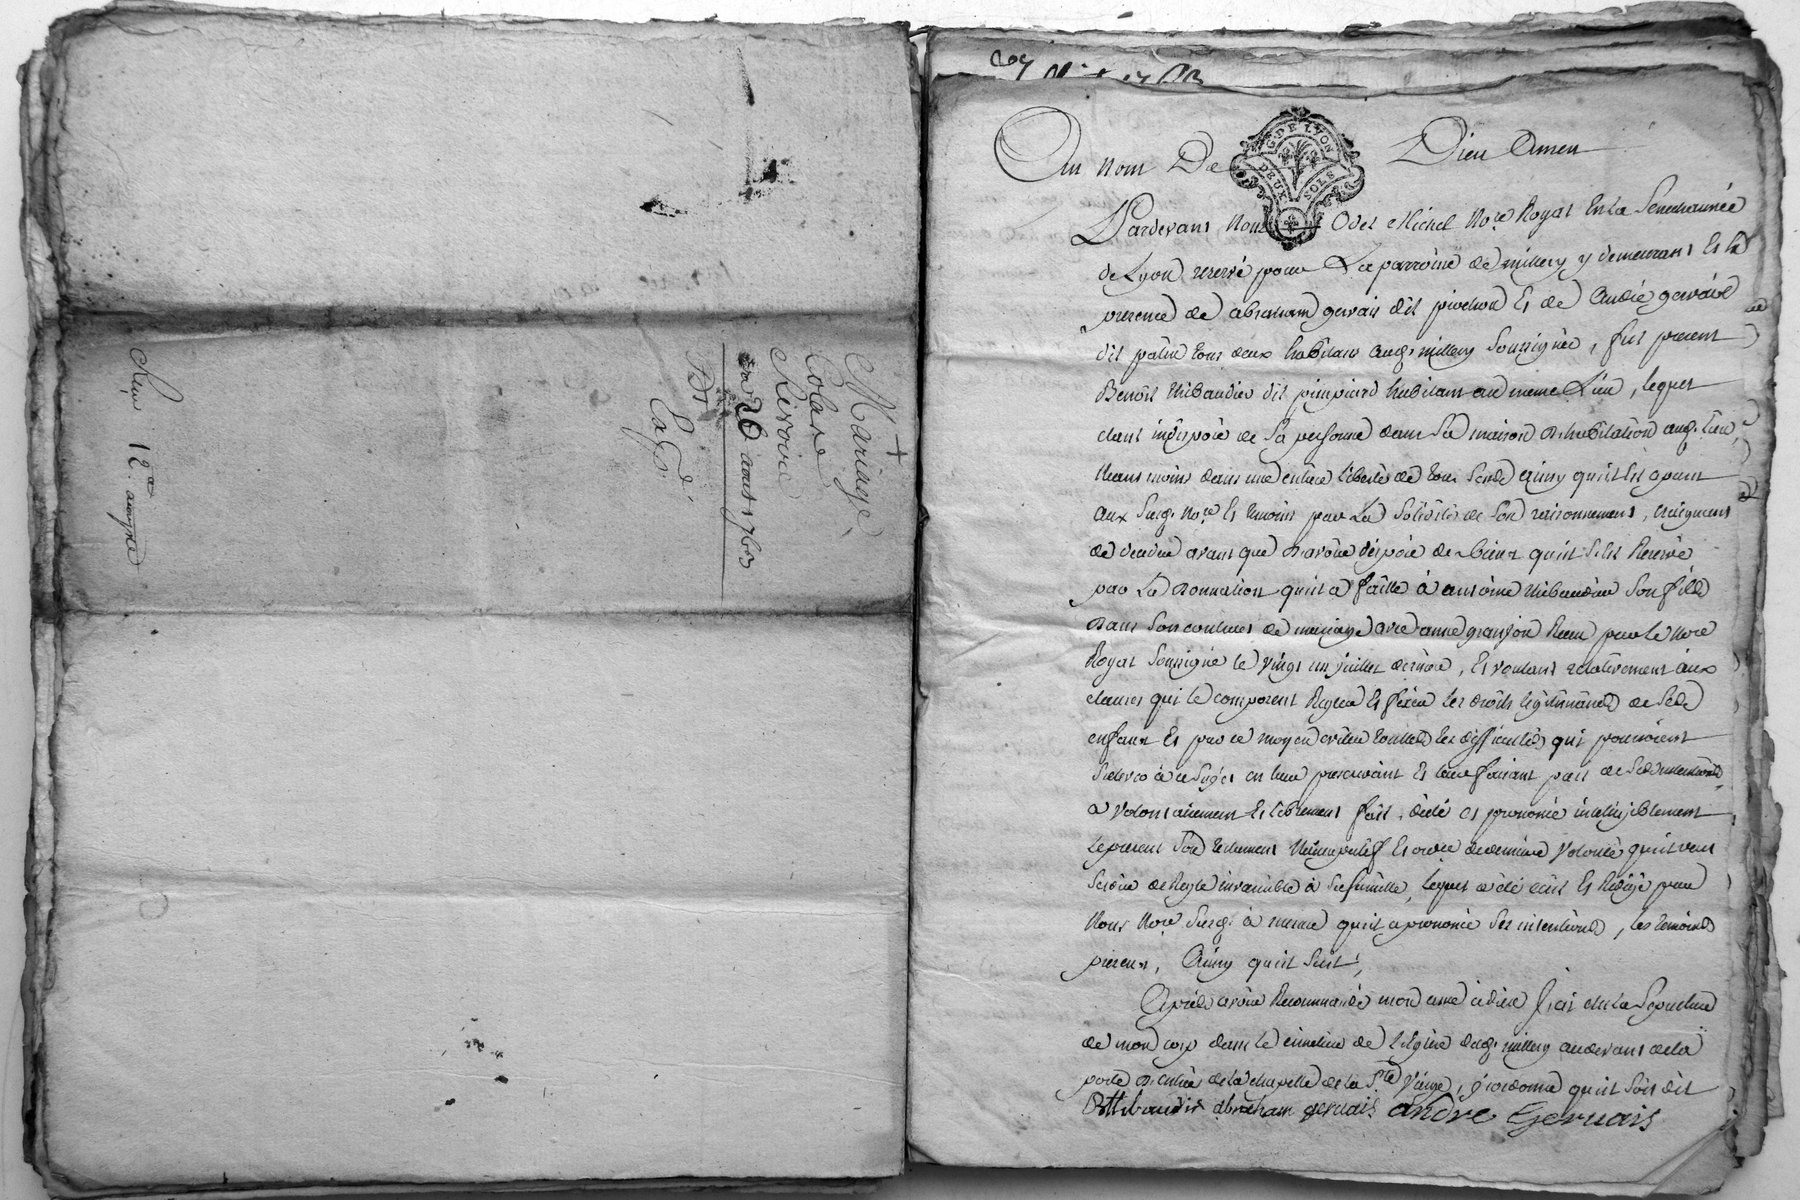 Mariage
+
Colare
Rivoire
20 aoust 1763
Dr
12a
Au nom De Dieu Amen
G. DE LYON
DEUX SOLS
Pardevant Nous Odet Michel No.re Royal En la Senechaussée
de Lyon reservé pour La parroisse de millery y demeurant Et la
presence de abraham gervais dit piochon Et de André gervais
dit patin tous deux habitans aud. millery soussignés, fut present
Benoit thibaudier dit habitant au meme Lieu, lequel
etant indisposé de sa personne dans sa maison d'habitation aud. lieu,
neans moins dans une entiere liberté de tous sens Ainsy qu'il Est aparu
aux susd. No.re Et temoins par La Solidité de Son raisonnement, craignant
de deceder avant que d'avoir disposé des biens qu'il s'est Reservé
par La Donnation qu'il a faitte à antoine thibaudier Son fils
Dans Son contract de mariage avec anne granjon Receu par le No.re
Royal Soussigné le vingt un juillet dernier, Et voulant relativement aux
clauses qui le composent Regler Et fixer les droits legitimaires de Ses
enfans Et par ce moyen eviter touttes les difficultés qui pouroient
a ce sujet en leur prescrivant Et leur faisant part de Ses intentions
a Volontairement Et librement fait, dicté Et prononcé intelligiblement
Le present Son testament Nuncupatif Et ordre de derniere Volonté qu'il veut
Servir de Regle invariable à sa famille, Lequel a été ecrit Et Redigé par
Nous No.re Susd. à mesure qu'il a prononcé Ses intentions, les temoins
presents, Ainsy qu'il Suit,
Après avoir Recommandé mon ame à dieu j'ai elu La Sepulture
de mon corp dans le cimetiere de L'Eglise dud. millery audevant de la
porte d'entrée de la chapelle de la Ste Vierge, j'ordonne qu'il Soit dit
B thibaudier abraham gervais andré Gervais